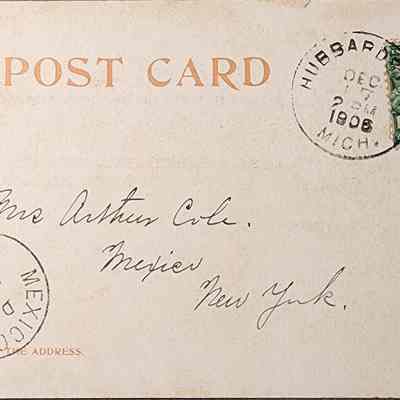 POST CARD
HUBBARD
DEC
17
2 PM
1906
MICH.
Mrs Arthur Cole.
Mexico
New York.
MEXICO
THE ADDRESS.